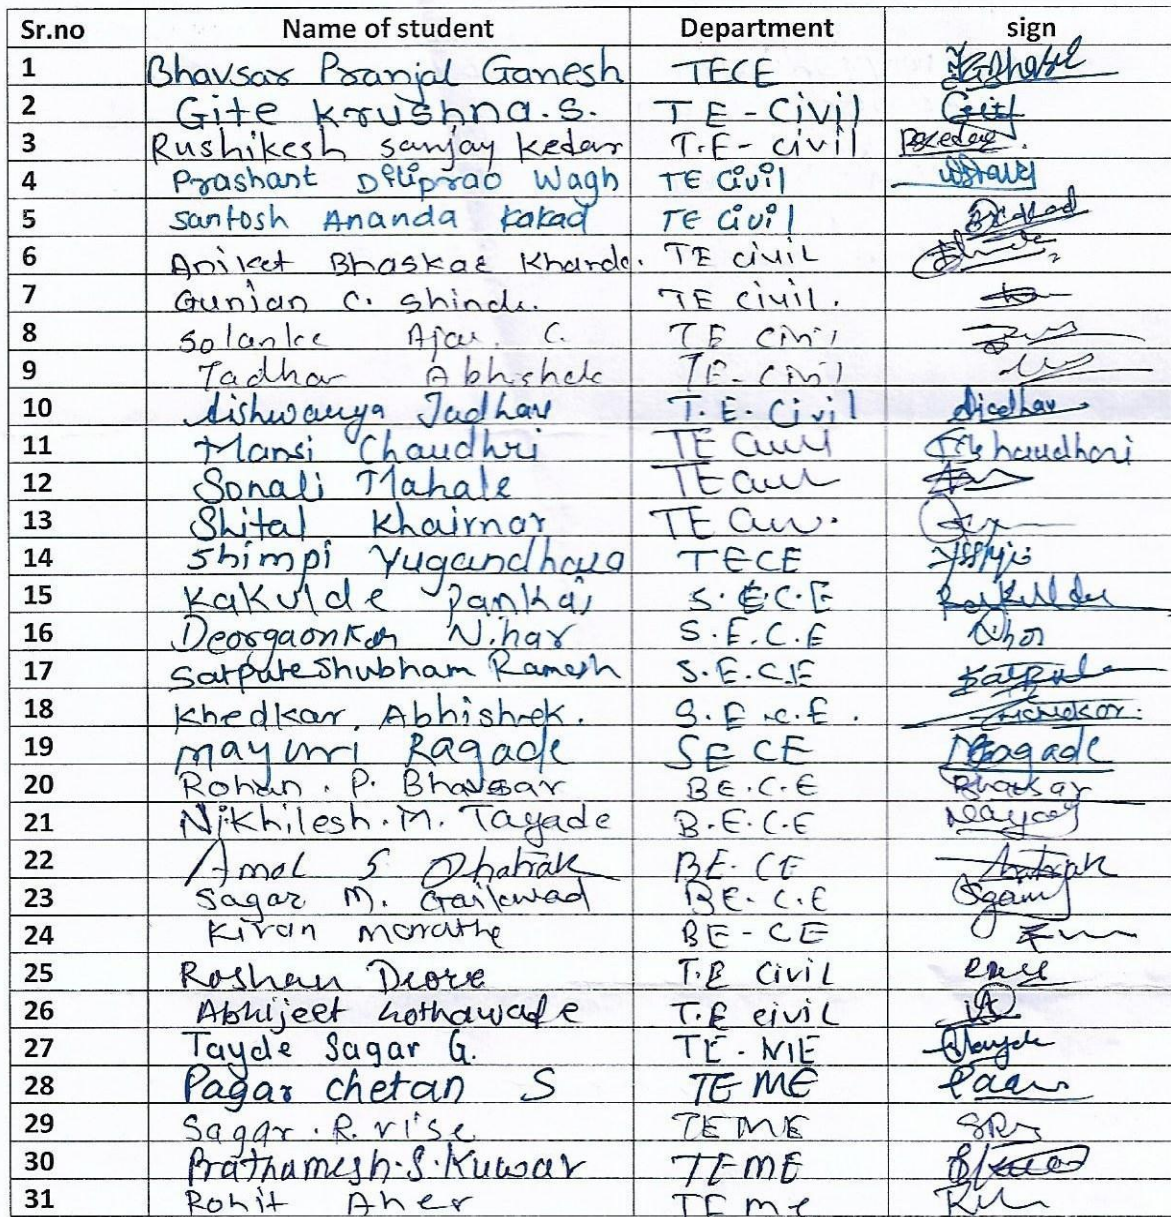 Sr.no Name of student Department sign
1 Bhavsar Pranjal Ganesh TECE
2 Gite Krushna.S. TE-Civil
3 Rushikesh sanjay Kedar T.E-civil
4 Prashant Diliprao Wagh TE Civil
5 Santosh Ananda Kakad TE Civil
6 Aniket Bhaskar Kharde. TE civil
7 Gunjan C. Shinde. TE civil.
8 Solanke Ajay. C. TE Civil
9 Jadhav Abhishek TE-Civil
10 Aishwarya Jadhav T.E.Civil
11 Mansi Chaudhri TE Civil
12 Sonali Mahale TE Civil
13 Shital Khairnar TE Civil.
14 Shimpi Yugandhara TECE
15 Kakulde Pankaj S.E.C.E
16 Deorgaonkar Nihar S.E.C.E
17 Satpute Shubham Ramesh S.E.C.E
18 Khedkar. Abhishek. S.E.C.E.
19 Mayuri Ragade SECE Ragade
20 Rohan. P. Bhavsar BE.C.E Bhavsar
21 Nikhilesh.M. Tayade B.E.C.E
22 Amol S Dhatrak BE.CE
23 Sagar M. Gaikwad BE.C.E
24 Kiran Marathe BE-CE
25 Roshan Deore T.E Civil
26 Abhijeet Kothawade T.E civil
27 Tayde Sagar G. TE-ME
28 Pagar chetan S TEME
29 Sagar.R.vise TEME
30 Prathamesh.S.Kuwar TEME
31 Rohit Aher TEme